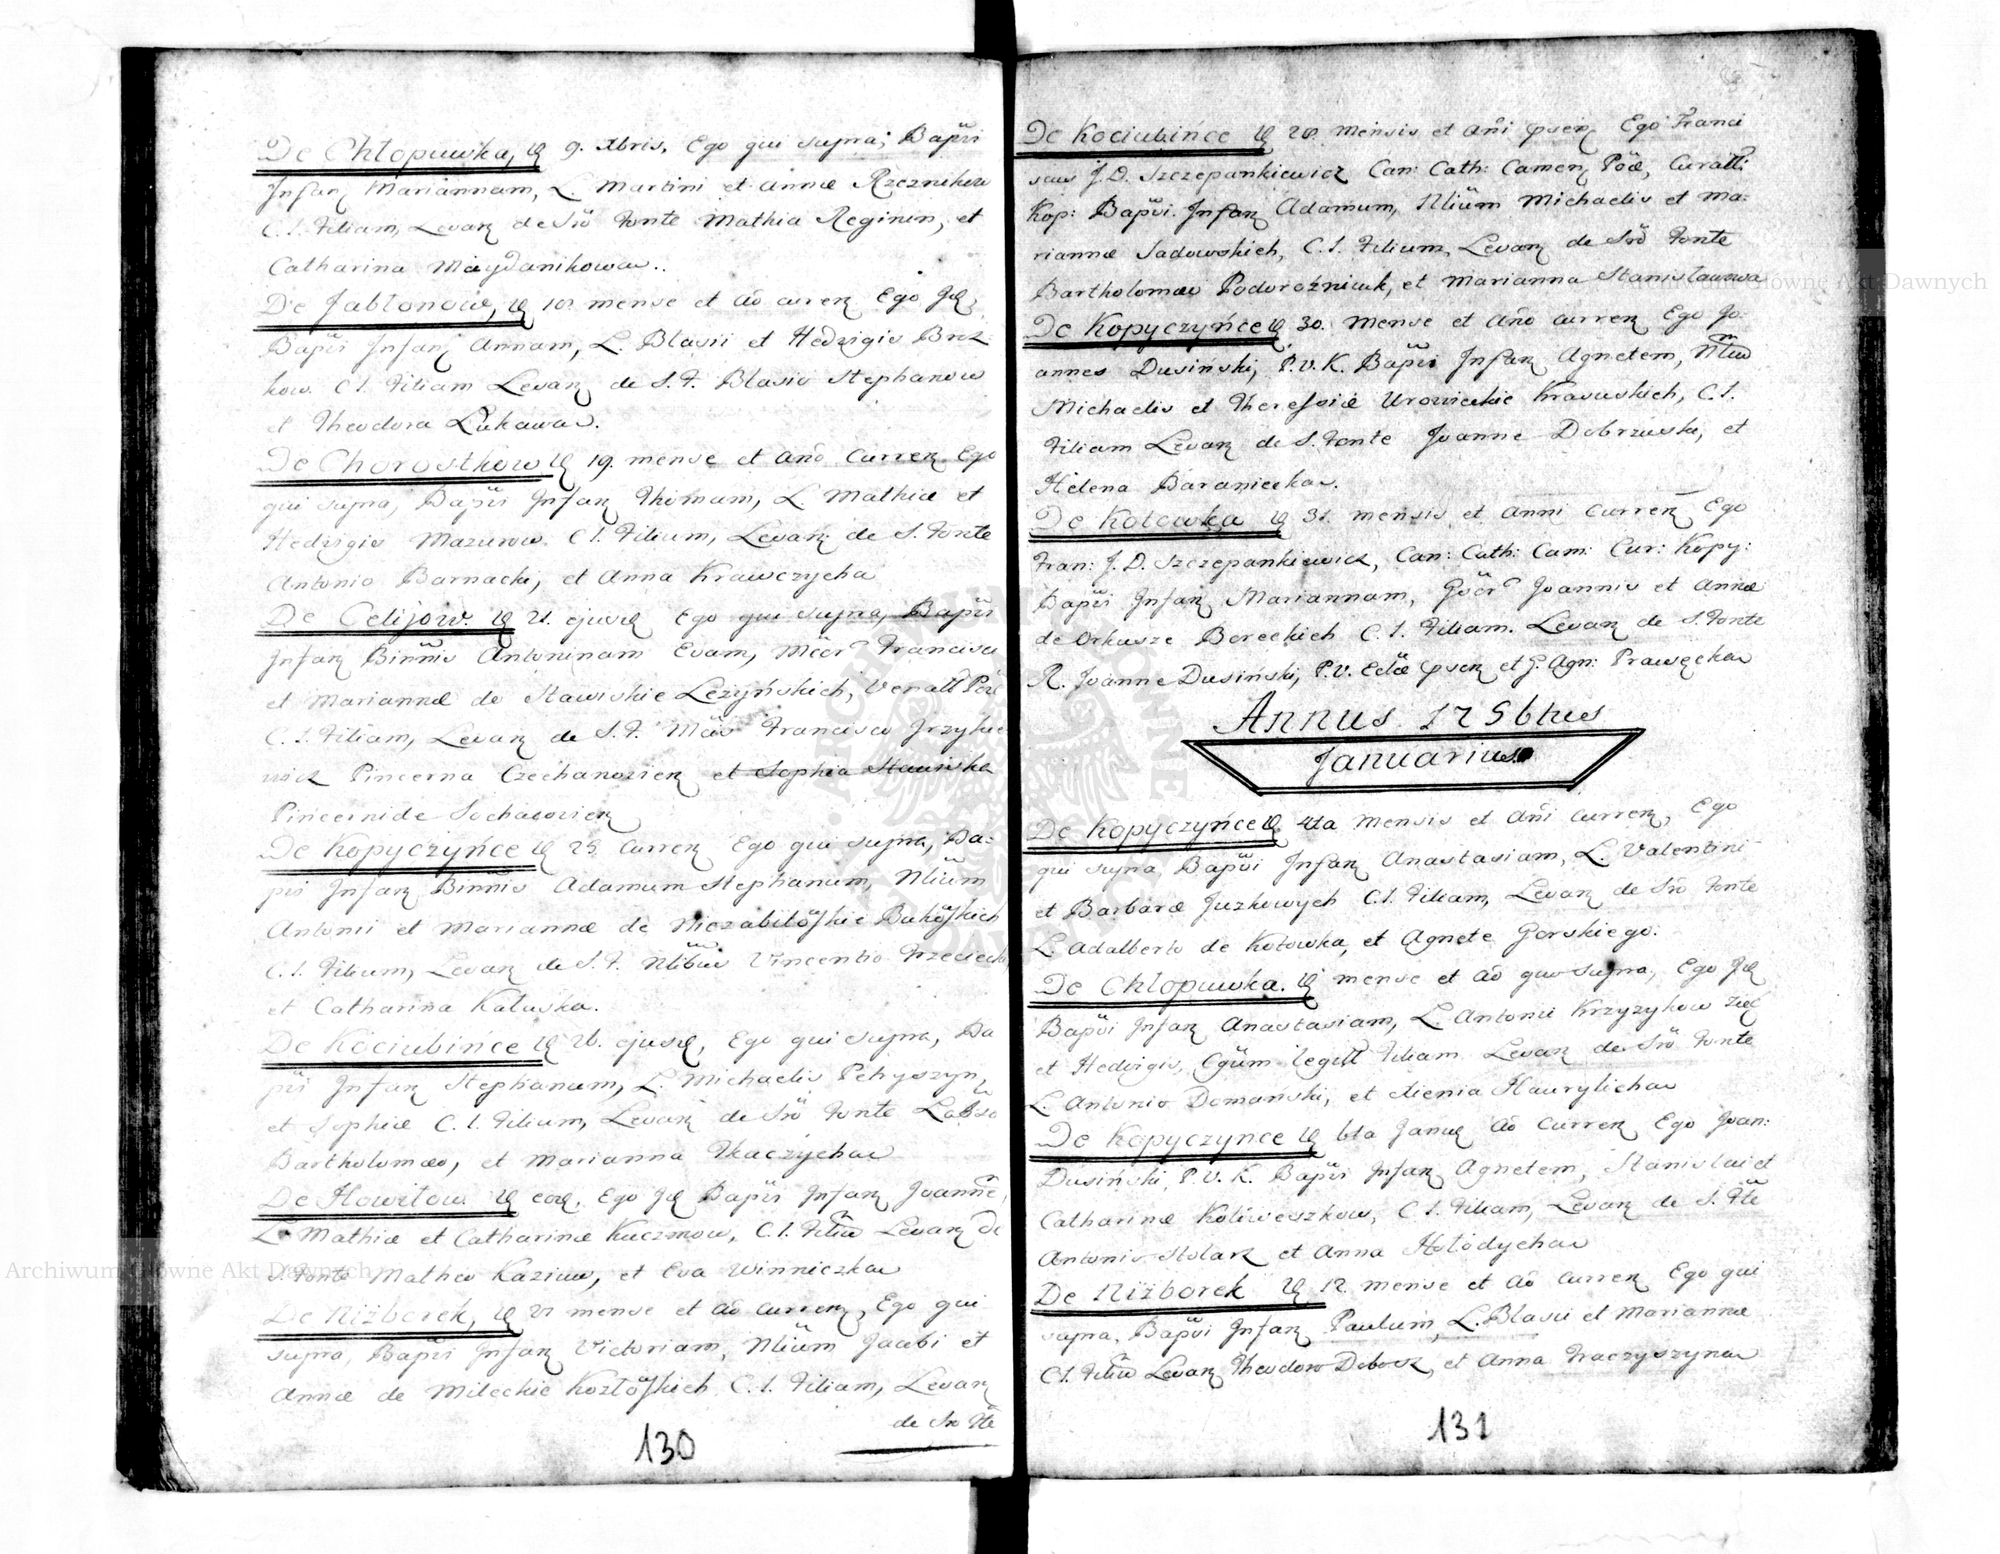 De Chłopuwka, 9. Xbris, Ego qui supra, Bapzi
Infan Mariannam, L. Martini et Annæ Rzeznikow
C. L. Filiam, Levan de Sro Fonte Mathia Reginen, et
Catharina Maydanikowa.
De Jabłonow, 10. mense et ao curen Ego Id
Bapzi Infan Annam, L. Blasii et Hedvigis Broz
kow. C. L. Filiam Levan de S. F. Blasio Stephanow
et Theodora Lukawa.
De Chorostkow 19. mense et ano Curren Ego
qui supra, Bapzi Infan Thomam, L. Mathiæ et
Hedvigis Mazurow. C. L. Filium, Levan de S. Fonte
Antonio Barnacki, et Anna Krawczycha
De Celijow. 21. ejusd Ego qui supra, Bapzi
Infan Binnis Antoninam Evam, Francisci
et Mariannæ de Stawiskie Leżyńskich, Venatt
C. L. Filiam, Levan de S. F. Francisco
wicz Pincerna Czechanovien et Sophia Stawiska
Pincernide Sochacovien
De Kopyczyńce 25. curren Ego qui supra, Ba-
pzi Infan Binnis Adamum Stephanum, Nlium
Antonii et Mariannæ de Niezabitoskie Bukoskich
C. L. Filium, Levan de S. F. Nlibus Vincentio Trzecieck
et Catharina Kałuska.
De Kociubińce 26. ejusd, Ego qui supra, Ba
pzi Infan Stephanum, L. Michaelis Petryszyn,
et Sophiæ C. L. Filium, Levan de Sro Fonte
Bartholomæo, et Marianna Tkaczycha
De Howiłow. eod. Ego Id Bapzi Infan Joanne,
L. Mathiæ et Catharinæ Kuczmow, C. L. Filiu Levan de
S. Fonte Matheo Kaziuw, et Eva Winniczka
De Niżborek, 27 mense et ao curren, Ego qui
supra, Bapzi Infan Victoriam, Nlium Jacobi et
Annæ de Mileckie Kozłoskich C. L. Filiam, Levan
de Sro Fte
130
De Kociubińce 28. mensis et ani psen Ego Franci
scus J. D. Szczepankiewicz Can: Cath: Camen, Curatt:
Kop: Bapzi Infan Adamum, Nlium Michaelis et Ma-
riannæ Sadowskich, C. L. Filium, Levan de Sro Fonte
Bartholomæo Podorożniuk, et Marianna Stanisławowa
De Kopyczyńce 30. mense et ano curren Ego Jo-
annes Dusiński, P. V. K. Bapzi Infan Agnetem, Nliu
Michaelis et Theressiæ Urowieckie Krasuskich, C. L.
Filiam Levan de S. Fonte Joanne Dobrzuski, et
Helena Baraniecka.
De Kotowka 31. mensis et anni curren Ego
Fran: J. D. Szczepankiewicz, Can: Cath: Cam: Cur: Kopy:
Bapzi Infan Mariannam, Joannis et Annæ
de Orkusze Boreckich C. L. Filiam. Levan de S. Fonte
R. Joanne Dusiński, P. V. Eclæ psen et G. Agn: Prawęcka
Annus 1756thus
Januarius
De Kopyczyńce 4ta mensis et ani curren, Ego
qui supra Bapzi Infan Anastasiam, L. Valentini
et Barbaræ Juzkowych C. L. Filiam, Levan de Sro Fonte
L. Adalberto de Kotowka, et Agnete Gorskiego.
De Chłopuwka. mense et ao quo supra, Ego Id
Bapzi Infan Anastasiam, L. Antonii Krzyzykow
et Hedvigis, Cgum legitt Filiam Levan de Sro Fonte
L. Antonio Domański, et Xienia Hauryłicha
De Kopyczynce 6ta Janu ao curren Ego Joan:
Dusiński, P. V. K. Bapzi Infan Agnetem, Stanislai et
Catharinæ Koliweszkow, C. L. Filiam, Levan de S. Fte
Antonio Stolarz et Anna Hołodycha
De Niżborek 12. mense et ao curren Ego qui
supra, Bapzi Infan Paulum, L. Blasii et Mariannæ
C. L. Filiu Levan Theodoro Dobosz, et Anna Traczyszyna
131
Archiwum Główne Akt Dawnych
Archiwum Główne Akt Dawnych